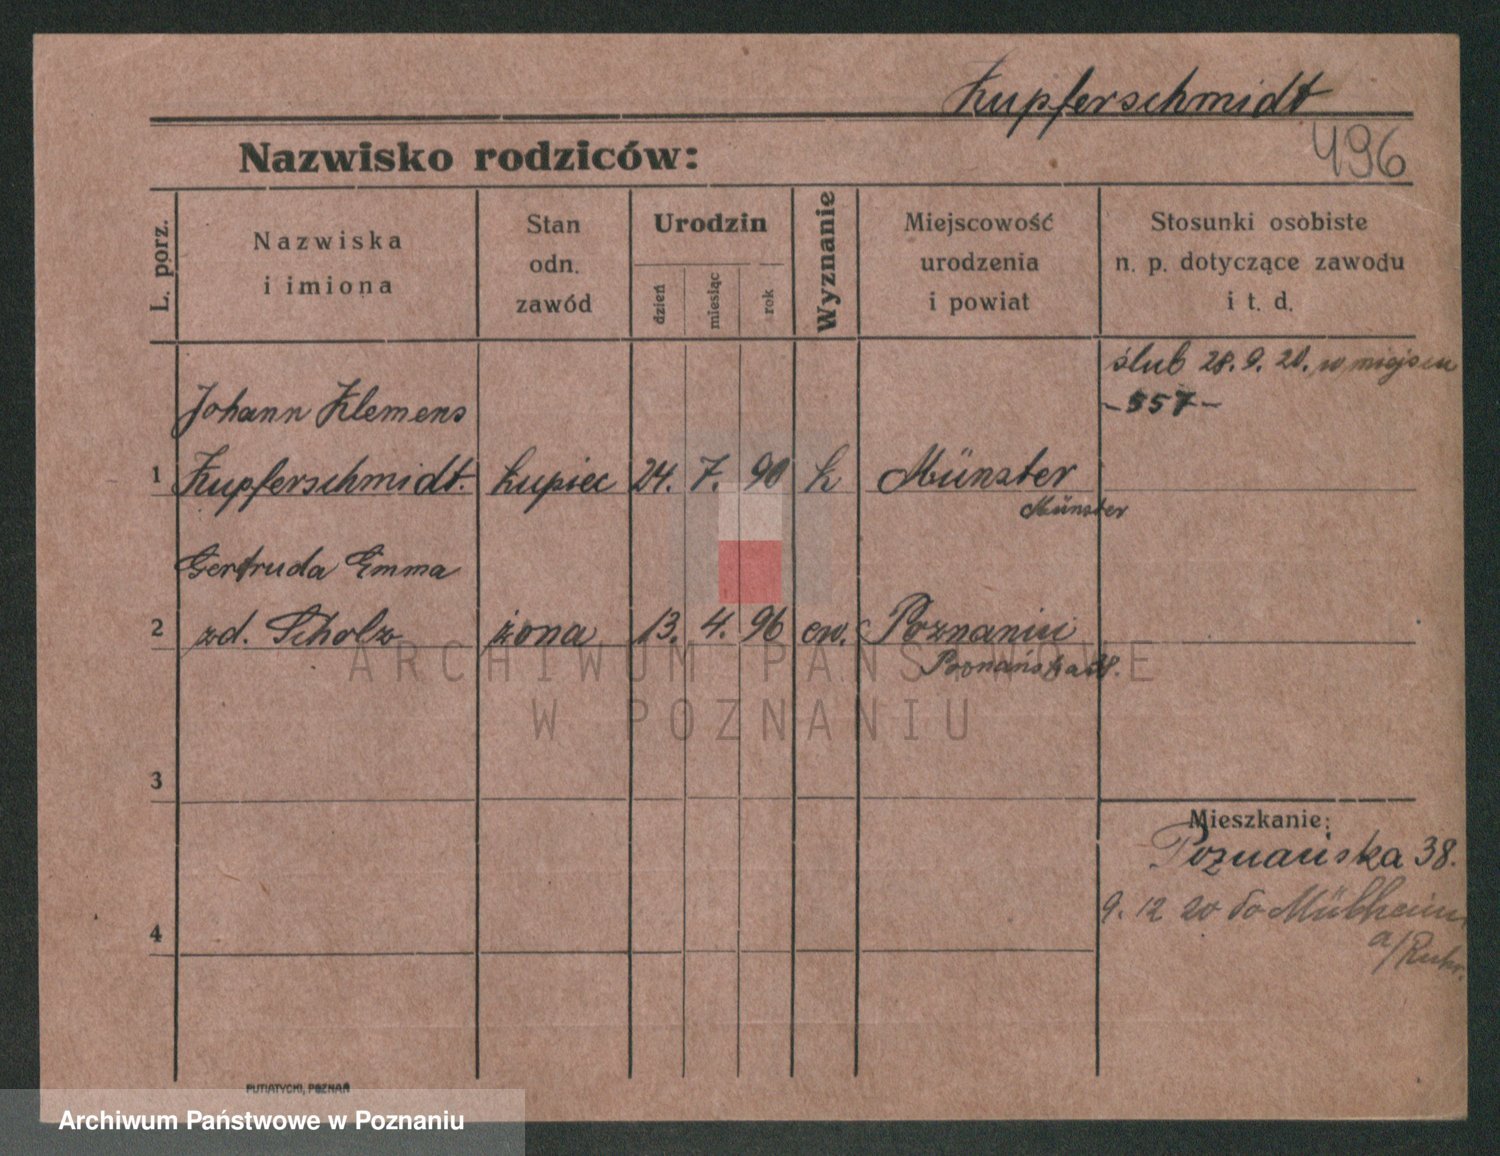 Kupferschmidt
496
Nazwisko rodziców:
L. porz.
Nazwiska
i imiona
Stan
odn.
zawód
Urodzin
dzień
miesiąc
rok
Wyznanie
Miejscowość
urodzenia
i powiat
Stosunki osobiste
n. p. dotyczące zawodu
i t. d.
ślub 28. 9. 20. w miejscu
- 557 -
Johann Klemens
1 Kupferschmidt. kupiec 24. 7. 90 k Münster
Münster
Gertruda Emma
2 zd. Scholz żona 13. 4. 96 ew. Poznaniu
Poznańska 38.
ARCHIWUM PAŃSTWOWE
W POZNANIU
3
Mieszkanie:
Poznańska 38.
9. 12 20 do Mülheim
a/Ruhr.
4
PUTIATYCKI, POZNAŃ
Archiwum Państwowe w Poznaniu